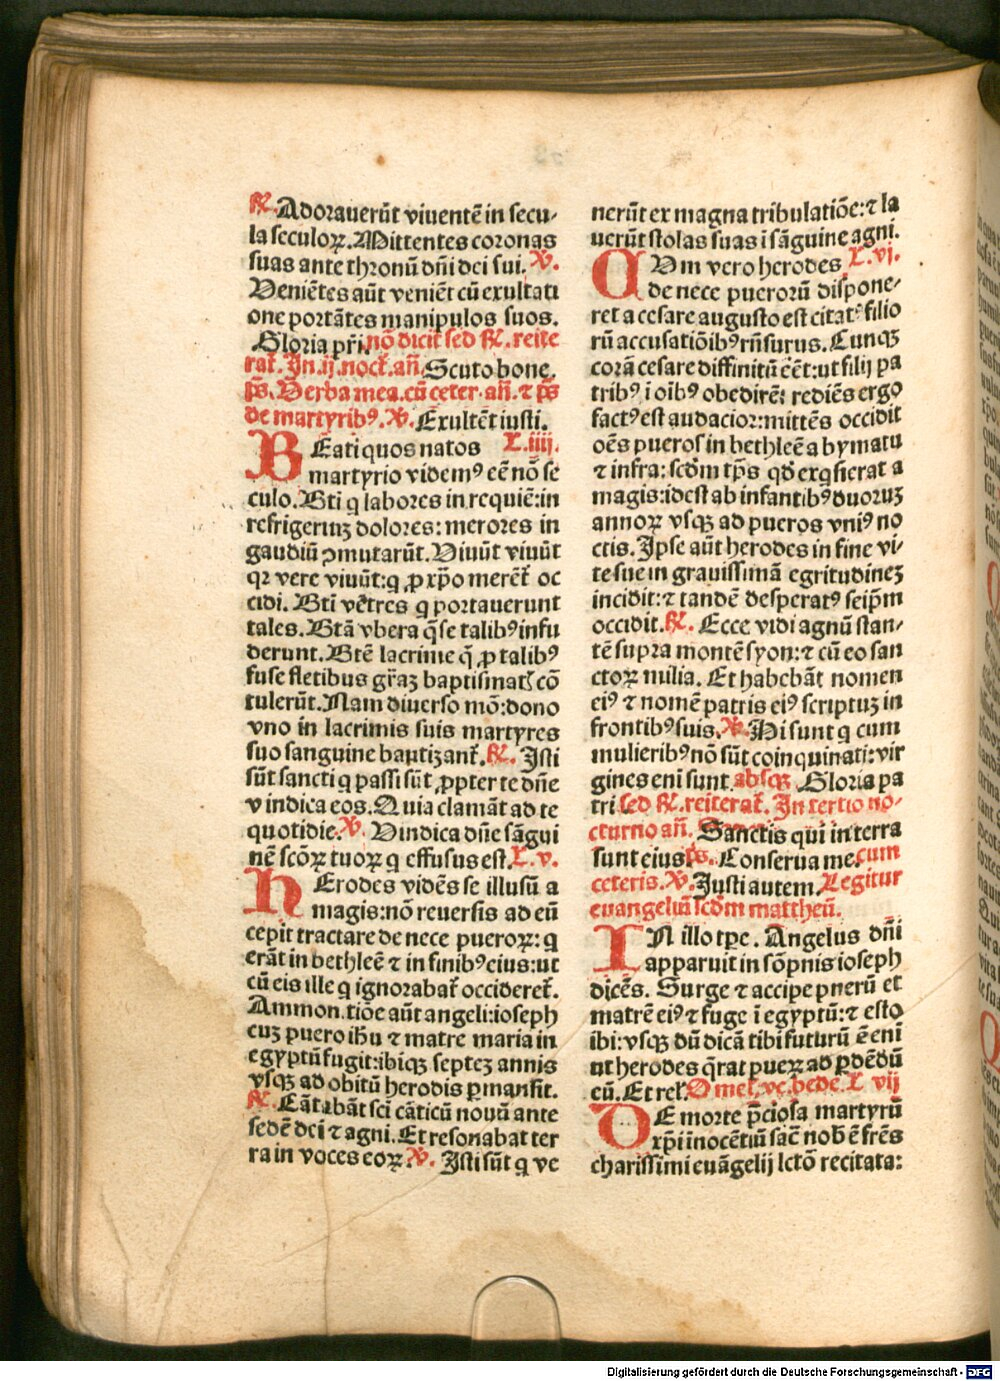 ℟. Adorauerūt viuentē in secu-
la seculoꝝ. Mittentes coronas
suas ante thronū dn̄i dei sui. ℣.
Veniētes aūt veniēt cū exultati
one portātes manipulos suos.
Gloria pr̄i. nō dicit̄ sed ℟. reite
rat̄. In .ij. noct̄. an̄. Scuto bone.
ps̄. Verba mea. cū ceter. an̄. ⁊ ps̄
de martyribꝰ. ℣. Exultēt iusti.
BEati quos natos L. iiij.
martyrio videmꝰ eē nō se
culo. Bt̄i q labores in requiē: in
refrigeriuꝫ dolores: merores in
gaudiū ꝯmutarūt. Viuūt viuūt
qꝛ vere viuūt: q ꝓ xp̄o merēt̄ oc
cidi. Bt̄i vētres q portauerunt
tales. Bt̄a vbera q̄ se talibꝰ infu
derunt. Bt̄e lacrime q̄ ꝓ talibꝰ
fuse fletibus gr̄aꝫ baptismatꝭ cō
tulerūt. Nam diuerso mō: dono
vno in lacrimis suis martyres
suo sanguine baptizant̄. ℟. Isti
sūt sancti q passi sūt ꝓpter te dn̄e
vindica eos. Quia clamāt ad te
quotidie. ℣. Vindica dn̄e sāgui
nē scōꝝ tuoꝝ q effusus est. L. v.
HErodes vidēs se illusū a
magis: nō reuersis ad eū
cepit tractare de nece pueroꝝ: q
erāt in bethleē ⁊ in finibꝰ eius: ut
cū eis ille q ignorabat̄ occideret̄.
Ammonitiōe aūt angeli: ioseph
cuꝫ puero ih̄u ⁊ matre maria in
egyptū fugit: ibiqꝫ septeꝫ annis
vsqꝫ ad obitū herodis ꝑmansit.
℟. Cātabāt sc̄i cāticū nouū ante
sedē dei ⁊ agni. Et resonabat ter
ra in voces eoꝝ. ℣. Isti sūt q ve
nerūt ex magna tribulatiōe: ⁊ la
uerūt stolas suas ī sāguine agni.
CVm vero herodes L. vj.
de nece puerorū dispone-
ret a cesare augusto est citatꝰ filio
rū accusatiōibꝰ rn̄surus. Cunqꝫ
corā cesare diffinitū eēt: ut filij pa
tribꝰ ī oībꝰ obedirēt rediēs ergo
factꝰ est audacior: mittēs occidit
oēs pueros in bethleē a bymatu
⁊ infra: scd̄m tp̄s qd̄ exq̄sierat a
magis: idest ab infantibꝰ duoruꝫ
annoꝝ vsqꝫ ad pueros vniꝰ no
ctis. Ipse aūt herodes in fine vi-
te sue in grauissimā egritudineꝫ
incidit: ⁊ tandē desperatꝰ seip̄m
occidit. ℟. Ecce vidi agnū stan-
tē supra montē syon: ⁊ cū eo san
ctoꝝ milia. Et habebāt nomen
eiꝰ ⁊ nomē patris eiꝰ scriptuꝫ in
frontibꝰ suis. ℣. Hi sunt q cum
mulieribꝰ nō sūt coinquinati: vir
gines enī sunt. absqꝫ Gloria pa
tri sed ℟. reiterat̄. In tertio no-
cturno an̄. Sanctis qui in terra
sunt eius. ps̄. Conserua me. cum
ceteris. ℣. Justi autem. Legitur
euangeliū scd̄m mattheū.
IN illo tp̄e. Angelus dn̄i
apparuit in sōpnis ioseph
dicēs. Surge ⁊ accipe puerū et
matrē eiꝰ ⁊ fuge ī egyptū: ⁊ esto
ibi: vsqꝫ dū dicā tibi futurū ē enī
ut herodes q̄rat pueꝝ ad ꝑdēdū
eū. Et rel̄. Omel̄. ve. bede. L vij
DE morte p̄ciosa martyrū
xp̄i īnocētiū sac̄ nob̄ ē frēs
charissimi euāgelij lctō recitata:
Digitalisierung gefördert durch die Deutsche Forschungsgemeinschaft - DFG